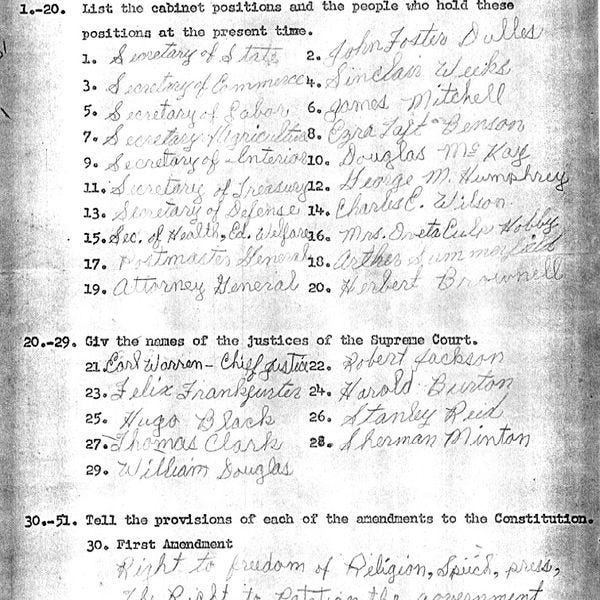 1.-20. List the cabinet positions and the people who hold these
positions at the present time.
1. Secretary of State 2. John Foster Dulles
3. Secretary of Commerce 4. Sinclair Weeks
5. Secretary of Labor 6. James Mitchell
7. Secretary Agriculture 8. Ezra Taft Benson
9. Secretary of Interior 10. Douglas McKay
11. Secretary of Treasury 12. George M. Humphrey
13. Secretary of Defense 14. Charles E. Wilson
15. Sec. of Health, Ed. Welfare 16. Mrs. Oveta Culp Hobby
17. Postmaster General 18. Arther Summerfield
19. Attorney General 20. Herbert Brownell
20.-29. Giv the names of the justices of the Supreme Court.
21. Earl Warren - Chief Justice 22. Robert Jackson
23. Felix Frankfurter 24. Harold Burton
25. Hugo Black 26. Stanley Reed
27. Thomas Clark 28. Sherman Minton
29. William Douglas
30.-51. Tell the provisions of each of the amendments to the Constitution.
30. First Amendment
Right to freedom of Religion, Speech, press,
The Right to Petition the government